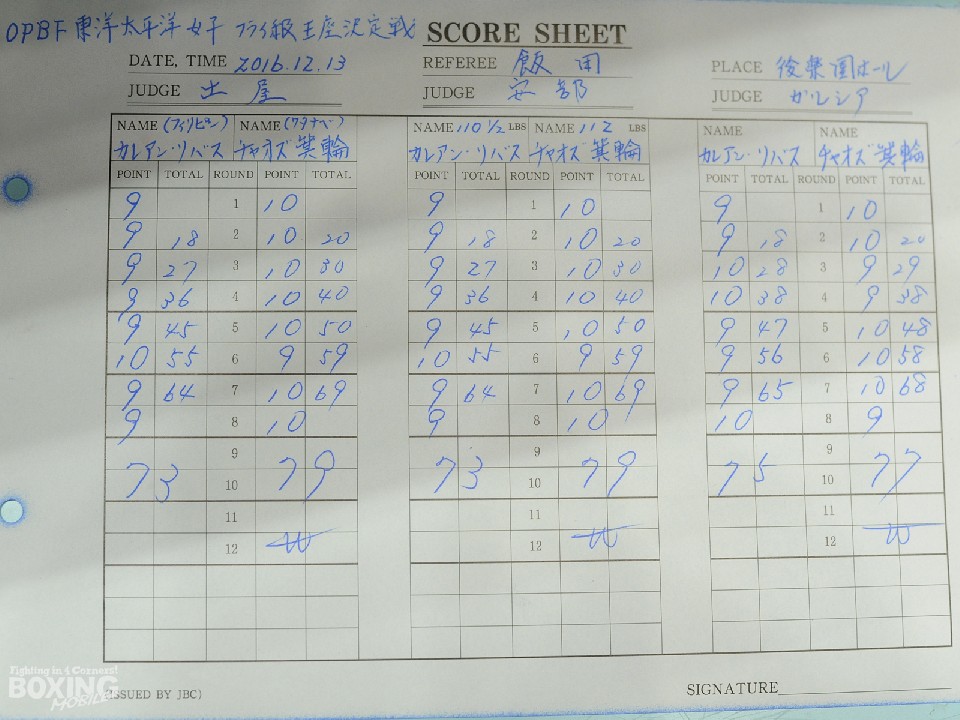 OPBF 東洋太平洋女子 フライ級王座決定戦 SCORE SHEET
DATE, TIME 2016.12.13 REFEREE 飯田 PLACE 後楽園ホール
JUDGE 土屋 JUDGE 安部 JUDGE ガルシア
NAME (フィリピン) NAME (ワタナベ) NAME 110 1/2 LBS NAME 112 LBS NAME NAME
カレアン・リバス チャオズ箕輪 カレアン・リバス チャオズ箕輪 カレアン・リバス チャオズ箕輪
POINT TOTAL ROUND POINT TOTAL POINT TOTAL ROUND POINT TOTAL POINT TOTAL ROUND POINT TOTAL
9 1 10 9 1 10 9 1 10
9 18 2 10 20 9 18 2 10 20 9 18 2 10 20
9 27 3 10 30 9 27 3 10 30 10 28 3 9 29
9 36 4 10 40 9 36 4 10 40 10 38 4 9 38
9 45 5 10 50 9 45 5 10 50 9 47 5 10 48
10 55 6 9 59 10 55 6 9 59 9 56 6 10 58
9 64 7 10 69 9 64 7 10 69 9 65 7 10 68
9 8 10 9 8 10 10 8 9
9 9 9
73 10 79 73 10 79 75 10 77
11 11 11
12 W 12 W 12 W
Fighting in 4 Corners!
BOXING
MOBILE
(ISSUED BY JBC) SIGNATURE